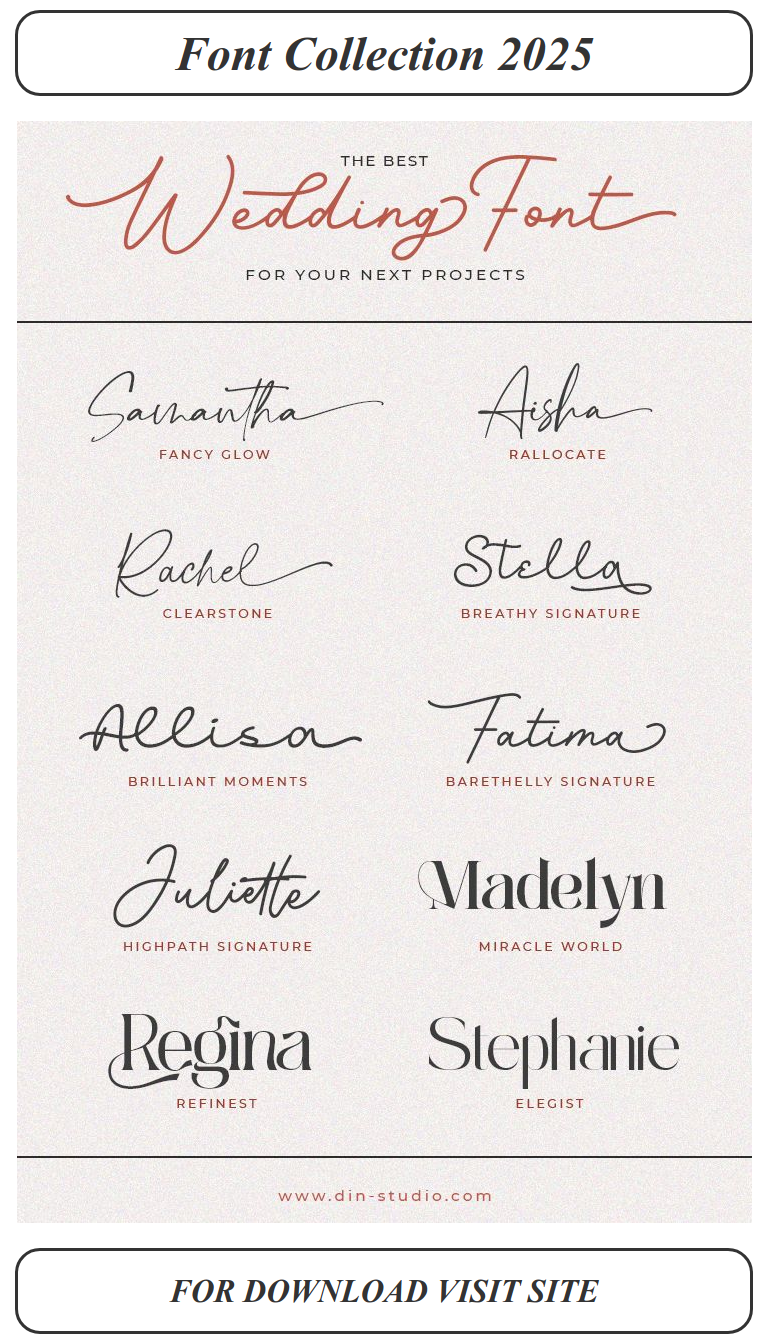 Font Collection 2025
THE BEST
Wedding Font
FOR YOUR NEXT PROJECTS
Samantha
FANCY GLOW
Aisha
RALLOCATE
Rachel
CLEARSTONE
Stella
BREATHY SIGNATURE
Allisa
BRILLIANT MOMENTS
Fatima
BARETHELLY SIGNATURE
Juliette
HIGHPATH SIGNATURE
Madelyn
MIRACLE WORLD
Regina
REFINEST
Stephanie
ELEGIST
www.din-studio.com
FOR DOWNLOAD VISIT SITE